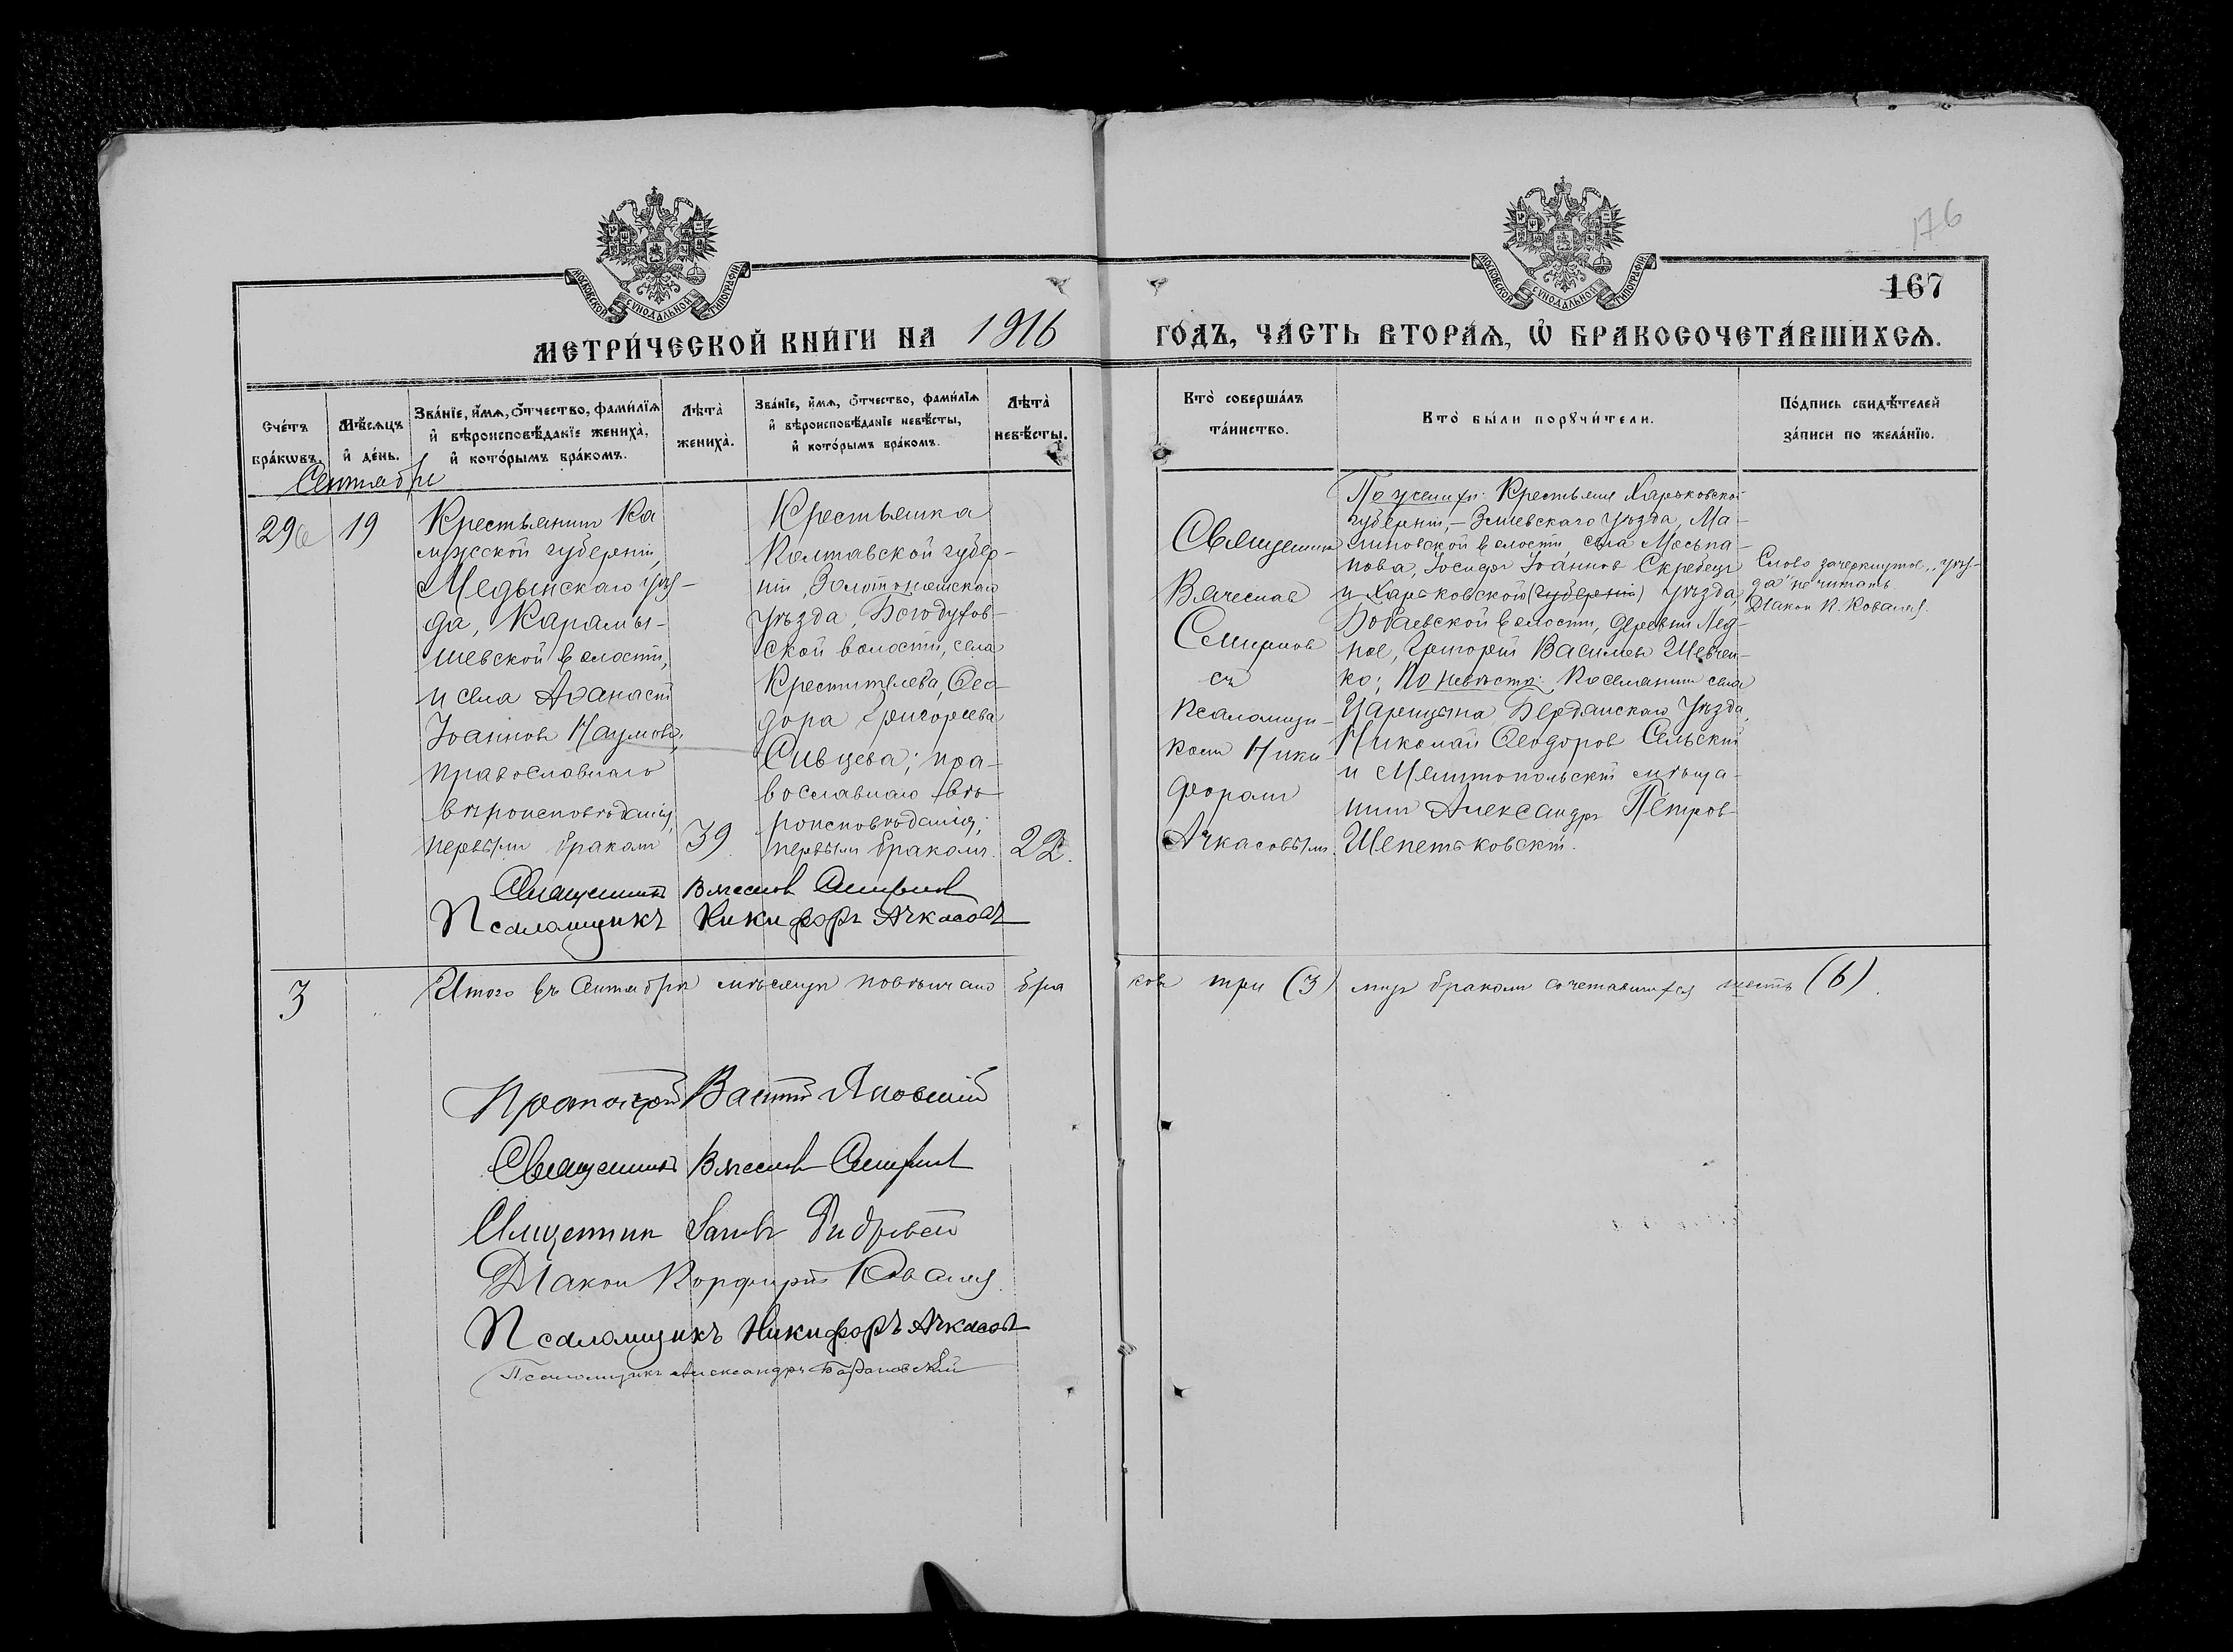 176
167
МОСКОВСКОЙ СѴНОДАЛЬНОЙ ТИПОГРАФІИ
МОСКОВСКОЙ СѴНОДАЛЬНОЙ ТИПОГРАФІИ
МЕТРИ́ЧЕСКОЙ КНИ́ГИ НА 1916 ГО́ДЪ, ЧА́СТЬ ВТОРА́Ѧ, Ѡ҆ БРАКОСОЧЕТА́ВШИХСѦ.
Сче́тъ бра́кѡвъ.
Мѣ́сѧцъ и҆ де́нь.
Зва́нїе, и҆́мѧ, ѻ҆́тчество, фами́лїѧ
и҆ вѣроисповѣ́данїе жениха̀,
и҆ кото́рымъ бра́комъ.
Лѣта̀ жениха̀.
Зва́нїе, и҆́мѧ, ѻ҆́тчество, фами́лїѧ
и҆ вѣроисповѣ́данїе невѣ́сты,
и҆ кото́рымъ бра́комъ.
Лѣта̀ невѣ́сты.
Кто̀ соверша́лъ
та́инство.
Кто̀ бы́ли порꙋчи́тели.
По́дпись свидѣ́телей
за́писи по жела́нїю.
Сентябрь
29
19
Крестьянинъ Ка
лужской губерніи,
Медынскаго уѣз-
да, Карамы-
шевской волости,
и села Аѳанасій
Іоанновъ Наумовъ,
православнаго
вѣроисповѣданія,
первымъ бракомъ
39
Крестьянка
Полтавской губер-
ніи, Золотоношскаго
уѣзда, Богодухов-
ской волости, села
Крестителева, Ѳео-
дора Григорьева
Сивцева; пра-
вославнаго вѣ-
роисповѣданія;
первымъ бракомъ.
22.
Священникъ Вячеславъ Смирновъ
Псаломщикъ Никифоръ Ачкасовъ
Священникъ
Вячеславъ
Смирновъ
съ
псаломщи-
комъ Ники-
форомъ
Ачкасовымъ.
По женихѣ: Крестьяне Харьковской
губерніи, - Зміевскаго уѣзда, Ма-
линовской волости, села Мосьпа-
нова, Іосифъ Іоанновъ Скребецъ
и Харьковской (губерніи) уѣзда,
Бабаевской волости, деревни Лед-
ное, Григорій Васильевъ Шевчен-
ко; По невѣстѣ: Поселянинъ села
Царицына, Бердянскаго уѣзда,
Николай Ѳеодоровъ Сельскій
и Мелитопольскій мѣща-
нинъ Александръ Петровъ
Шепетьковскій.
Слово зачеркнутое „уѣз-
да" не читать
Діаконъ П. Коваль
3
Итого въ Сентябрѣ мѣсяцѣ повѣнчано бра
ковъ три (3) лицъ бракомъ сочетавшихся шесть (6).
Протоіерей Василій Яновскій
Священникъ Вячеславъ Смирновъ
Священникъ
Діаконъ Порфирій Коваль
Псаломщикъ Никифоръ Ачкасовъ
Псаломщикъ Александръ Барановскій